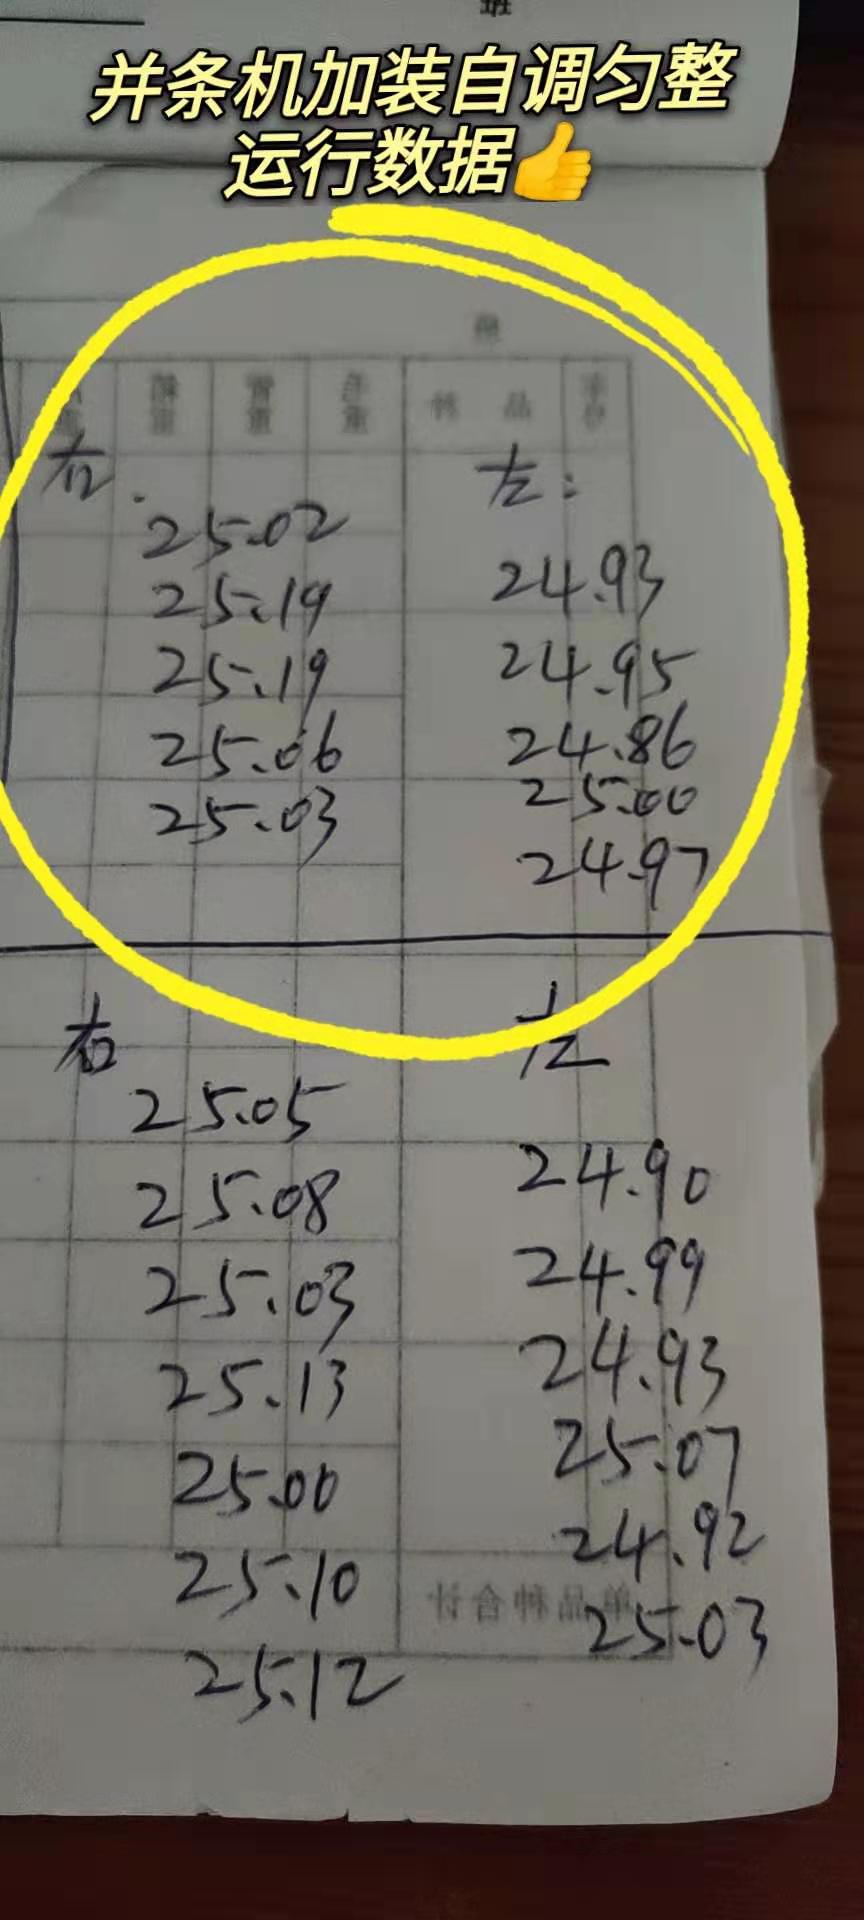 班
并条机加装自调匀整
运行数据👍
毛重
品 种
右.
左:
25.02
25.19
25.19
25.06
25.03
24.93
24.95
24.86
25.00
24.97
右
左
25.05
25.08
25.03
25.13
25.00
25.10
25.12
24.90
24.99
24.93
25.07
24.92
25.03
单品种合计